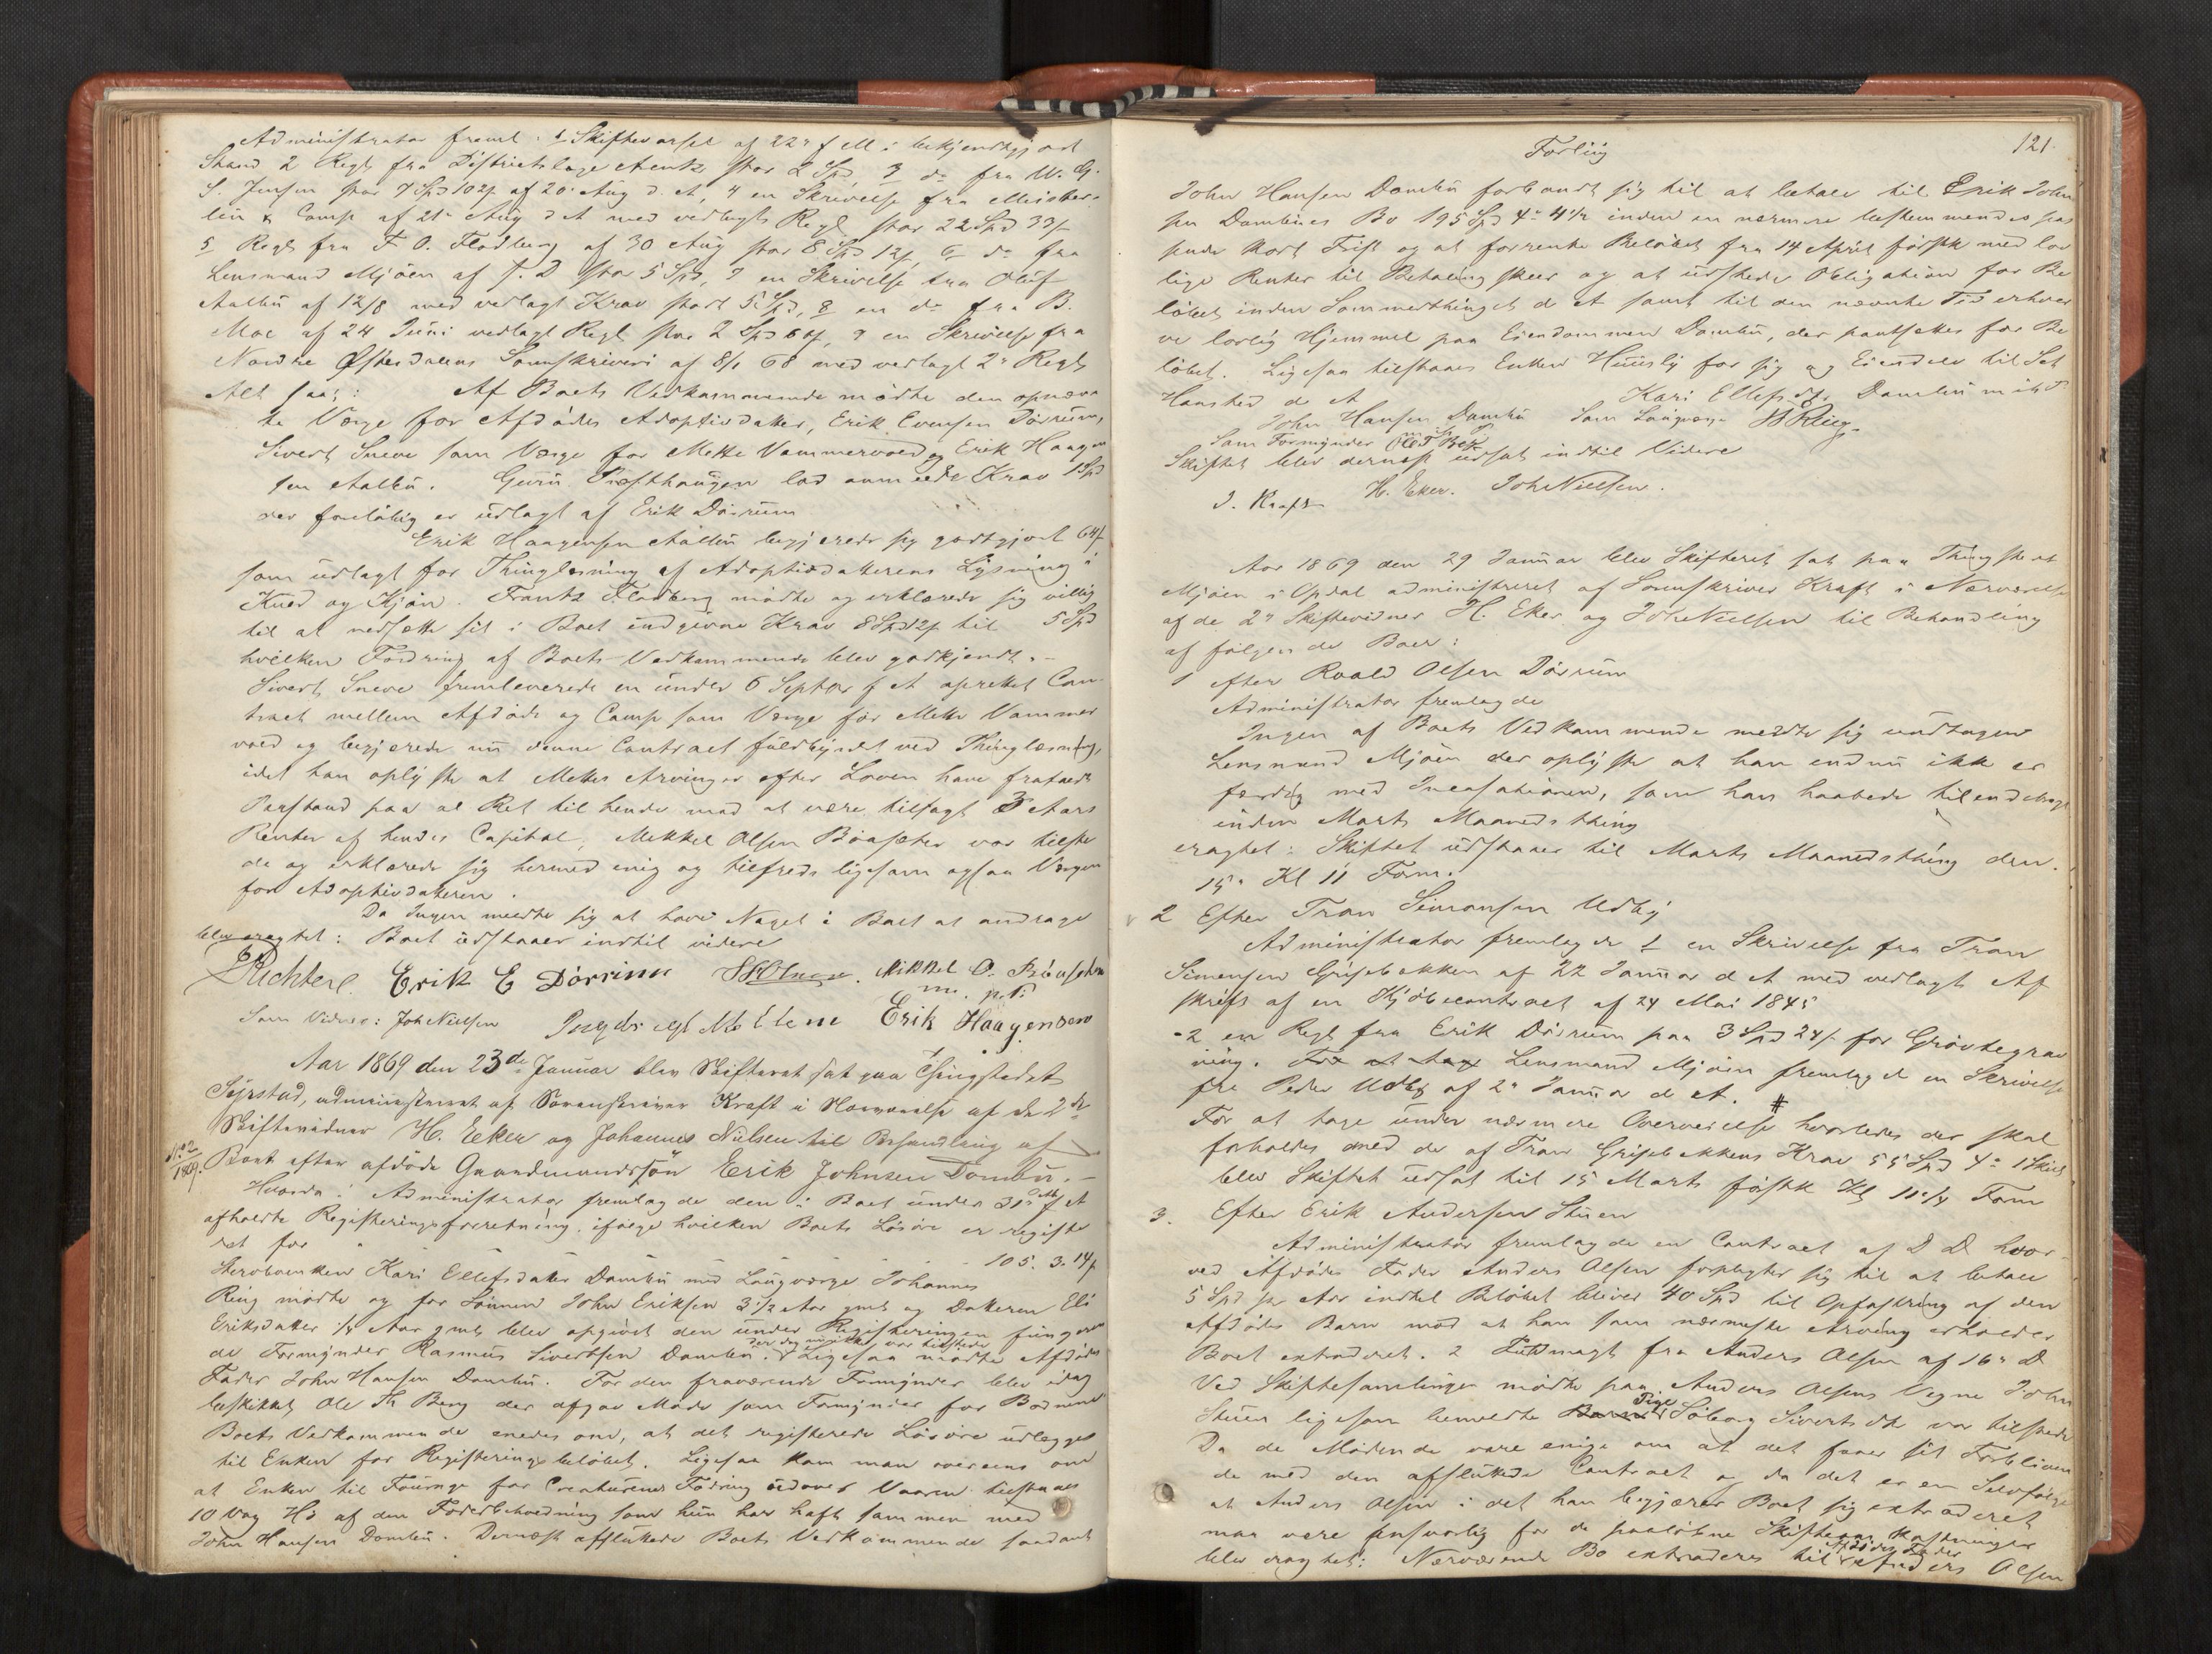 Administrator freml: 1 Skiftevarsel af 22de f M: bekjendtgjort
Stand 2 Regl fra Districtslæge Arentz stor 2 Spd, 3 do fra W. G.
S. Jensen stor 7 Spd 102 s af 20 Aug d. A, 4 en Skrivelse fra
lin & Comp af 21de Aug d A med vedlagt Regl stor 22 Spd 33 s
5 Regl fra F. O. Flodberg af 30 Aug stor 8 Spd 12 s, 6 do fra
Lensmand Mjöen af s. D stor 5 Spd, 7 en Skrivelse fra Oluf
Aalbu af 12/8 med vedlagt Krav stort 5 Spd, 8 en do fra B.
Moe af 24 Juni vedlagt Regl stor 2 Spd 60 s, 9 en Skrivelse fra
Nordre Østerdalens Sorenskriveri af 8/1 68 med vedlagt 2de Regl
Alt saal: Af Boets Vedkommende mødte den opnævn
te Værge for Afdødes Adoptivdatter, Erik Evensen Dørrum,
Sivert Sneve som Værge for Mette Vammervold og Erik Haagen
sen Aalbu. Guru Præsthaugen lod anmelde Krav 1 Spd
der foreløbig er udlagt af Erik Dörrum
Erik Haagensen Aalbu begjerede sig godtgjort 64 s
som udlagt for Thinglæsning af Adoptivdatterens Lysning i
Kued og Kjøn. Frantz Flodberg mødte og erklærede sig villig
til at nedsætte sit i Boet indgivne Krav 8 Spd 12 s til 5 Spd
hvilken Fordring af Boets Vedkommende blev godkjendt. –
Sivert Sneve fremleverede en under 6 Septbr f A oprettet Con
tract mellem Afdøde og Comp som Værge for Mette Vammer
vold og begjærede nu denne Contract fuldbyrdet ved Thinglæsning,
idet han oplyste at Mettes Arvinger efter Loven have frafaldt
Paastand paa al Ret til hende mod at være tilsagt 3 Aars
Renter af hendes Capital, Mikkel Olsen Böasæter var tilste
de og erklærede sig hermed enig og tilfreds ligesom ogsaa Værgen
for Adoptivdatteren.
Da Ingen meldte sig at have Noget i Boet at andrage
blev eragtet: Boet udstaaer indtil videre
Richter. Erik E Dörrum Mikkel O. Böasæter
m. p. P.
Som Vidner: Joh Nielsen Erik Haagensen
Aar 1869 den 23de Januar blev Skifteret sat paa Thingstedet
administreret af Sorenskriver Kraft i Nærværelse af de 2de
Skiftevidner H. Eeker og Johannes Nielsen til Behandling af
No 2/1869. Boet efter afdöde Gaardmandssön Erik Johnsen Dombu. –
Hvorda: Administrator fremlagde den i Boet under 31te f A
afholdte Registreringsforretning, ifølge hvilken Boets Løsøre er registre
ret for 105. 3. 14 s
Sterboenken Kari Ellefsdatter Dombu med Laugværge Johannes
Ring mødte og for Sønnen John Eriksen 3 1/2 Aar gml og Datteren Eli
Eriksdatter 1/4 Aar gml blev opgivet den under Registreringen fungeren
der dog ei var tilstede
de Formynder Rasmus Sivertsen Dombu. Ligesaa mødte Afdødes
Fader John Hansen Dombu. For den fraværende Formynder blev idag
beskikket Ole Th Berg der afgav Møde som Formynder for Børnene
Boets Vedkommende enedes om, at det registrerede Løsøre udlægges
til Enken for Registreringsbeløbet. Ligesaa kom man overeens om
at Enken til Fourage for Creaturenes Fødning udover Vaaren tilstaaes
10 Vog Hø af den Foderbeholdning som hun har havt sammen med
John Hansen Dombu. Dernæst afsluttede Boets Vedkommende saadant
121.
Forlig
John Hansen Dombu forbandt sig til at betale til Erik John
sen Dombues Bo 195 Spd 4 4 1/2 inden en nærmere bestemmendes pas
sende kort Frist og at forrente Beløbet fra 14 April førstk med lov
lige Renter til Betaling skeer og at udstede Obligation for Be
løbet inden Sommerthinget d A samt til den nævnte Tid erhver
ve lovlig Hjemmel paa Eiendommen Dombu, der pantsættes for Be
løbet. Ligesaa tilstaaes Enken Huusly for sig og Eiendele til Set
Hansted d A Kari Ellefsdtr Dombu m i P
John Hansen Dombu Som Laugværge Ring
m. i. P.
Som Formynder Ole T Berg
Skiftet blev dernæst udsat indtil Videre
J. Kraft H. Eker. Joh Nielsen.
Aar 1869 den 29 Januar blev Skifteret sat paa Thingstedet
Mjöen i Opdal administreret af Sorenskriver Kraft i Nærværelse
af de 2de Skiftevidner H. Eker og Joh Nielsen til Behandling
af følgende Boer:
1 efter Roald Olsen Dörrum
Administrator fremlagde
Ingen af Boets Vedkommende meldte sig undtagen
Lensmand Mjöen der oplyste at han endnu ikke er
færdig med Incasationen, som han haabede tilendebragt
inden Marts Maanedsthing
eragtet: Skiftet udstaaer til Marts Maanedsthing den
15de Kl 11 Form.
2 Efter Tron Simonsen Udby
Administrator fremlagde 1 en Skrivelse fra Tron
Simonsen Grisebakken af 22 Januar d A med vedlagt Af
skrift af en Kjøbecontract af 24 Mai 1845
- 2 en Regl fra Erik Dörrum paa 3 Spd 24 s for Grøvtegrav
ning. For at tage Lensmand Mjöen fremlagde en Skrivelse
fra Peder Udby af 2de Januar d A. #
For at tage under nærmere Overveielse hvorledes der skal
forholdes med de af Tron Grisebakkens Krav 55 Spd 4 1 Skill
blev Skiftet udsat til 15 Marts førstk Kl 11 1/4 Form
3. Efter Erik Andersen Stuen
Administrator fremlagde en Contract af D D hvor-
ved Afdødes Fader Anders Olsen forpligter sig til at betale
5 Spd pr Aar indtil Beløbet bliver 40 Spd til Opfostring af den
Afdødes Barn mod at han som nærmeste Arving erholder
Boet extraderet. 2 Fuldmagt fra Anders Olsen af 16de D
Ved Skiftesamlingen mødte paa Anders Olsens Vegne John
Pige
Stuen ligesom bemeldte Barns Söborg Sivertsdtr var tilstede
Da de Mødende vare enige om at det faaer sit Forbliven
de med den afsluttede Contract og da det er en Selvfølge
at Anders Olsen i det han begjærer Boet sig extraderet
maa være ansvarlig for de paaløbne Skifteomkostninger
Afdødes Fader
blev eragtet: Nærværende Bo extraderes til Anders Olsen